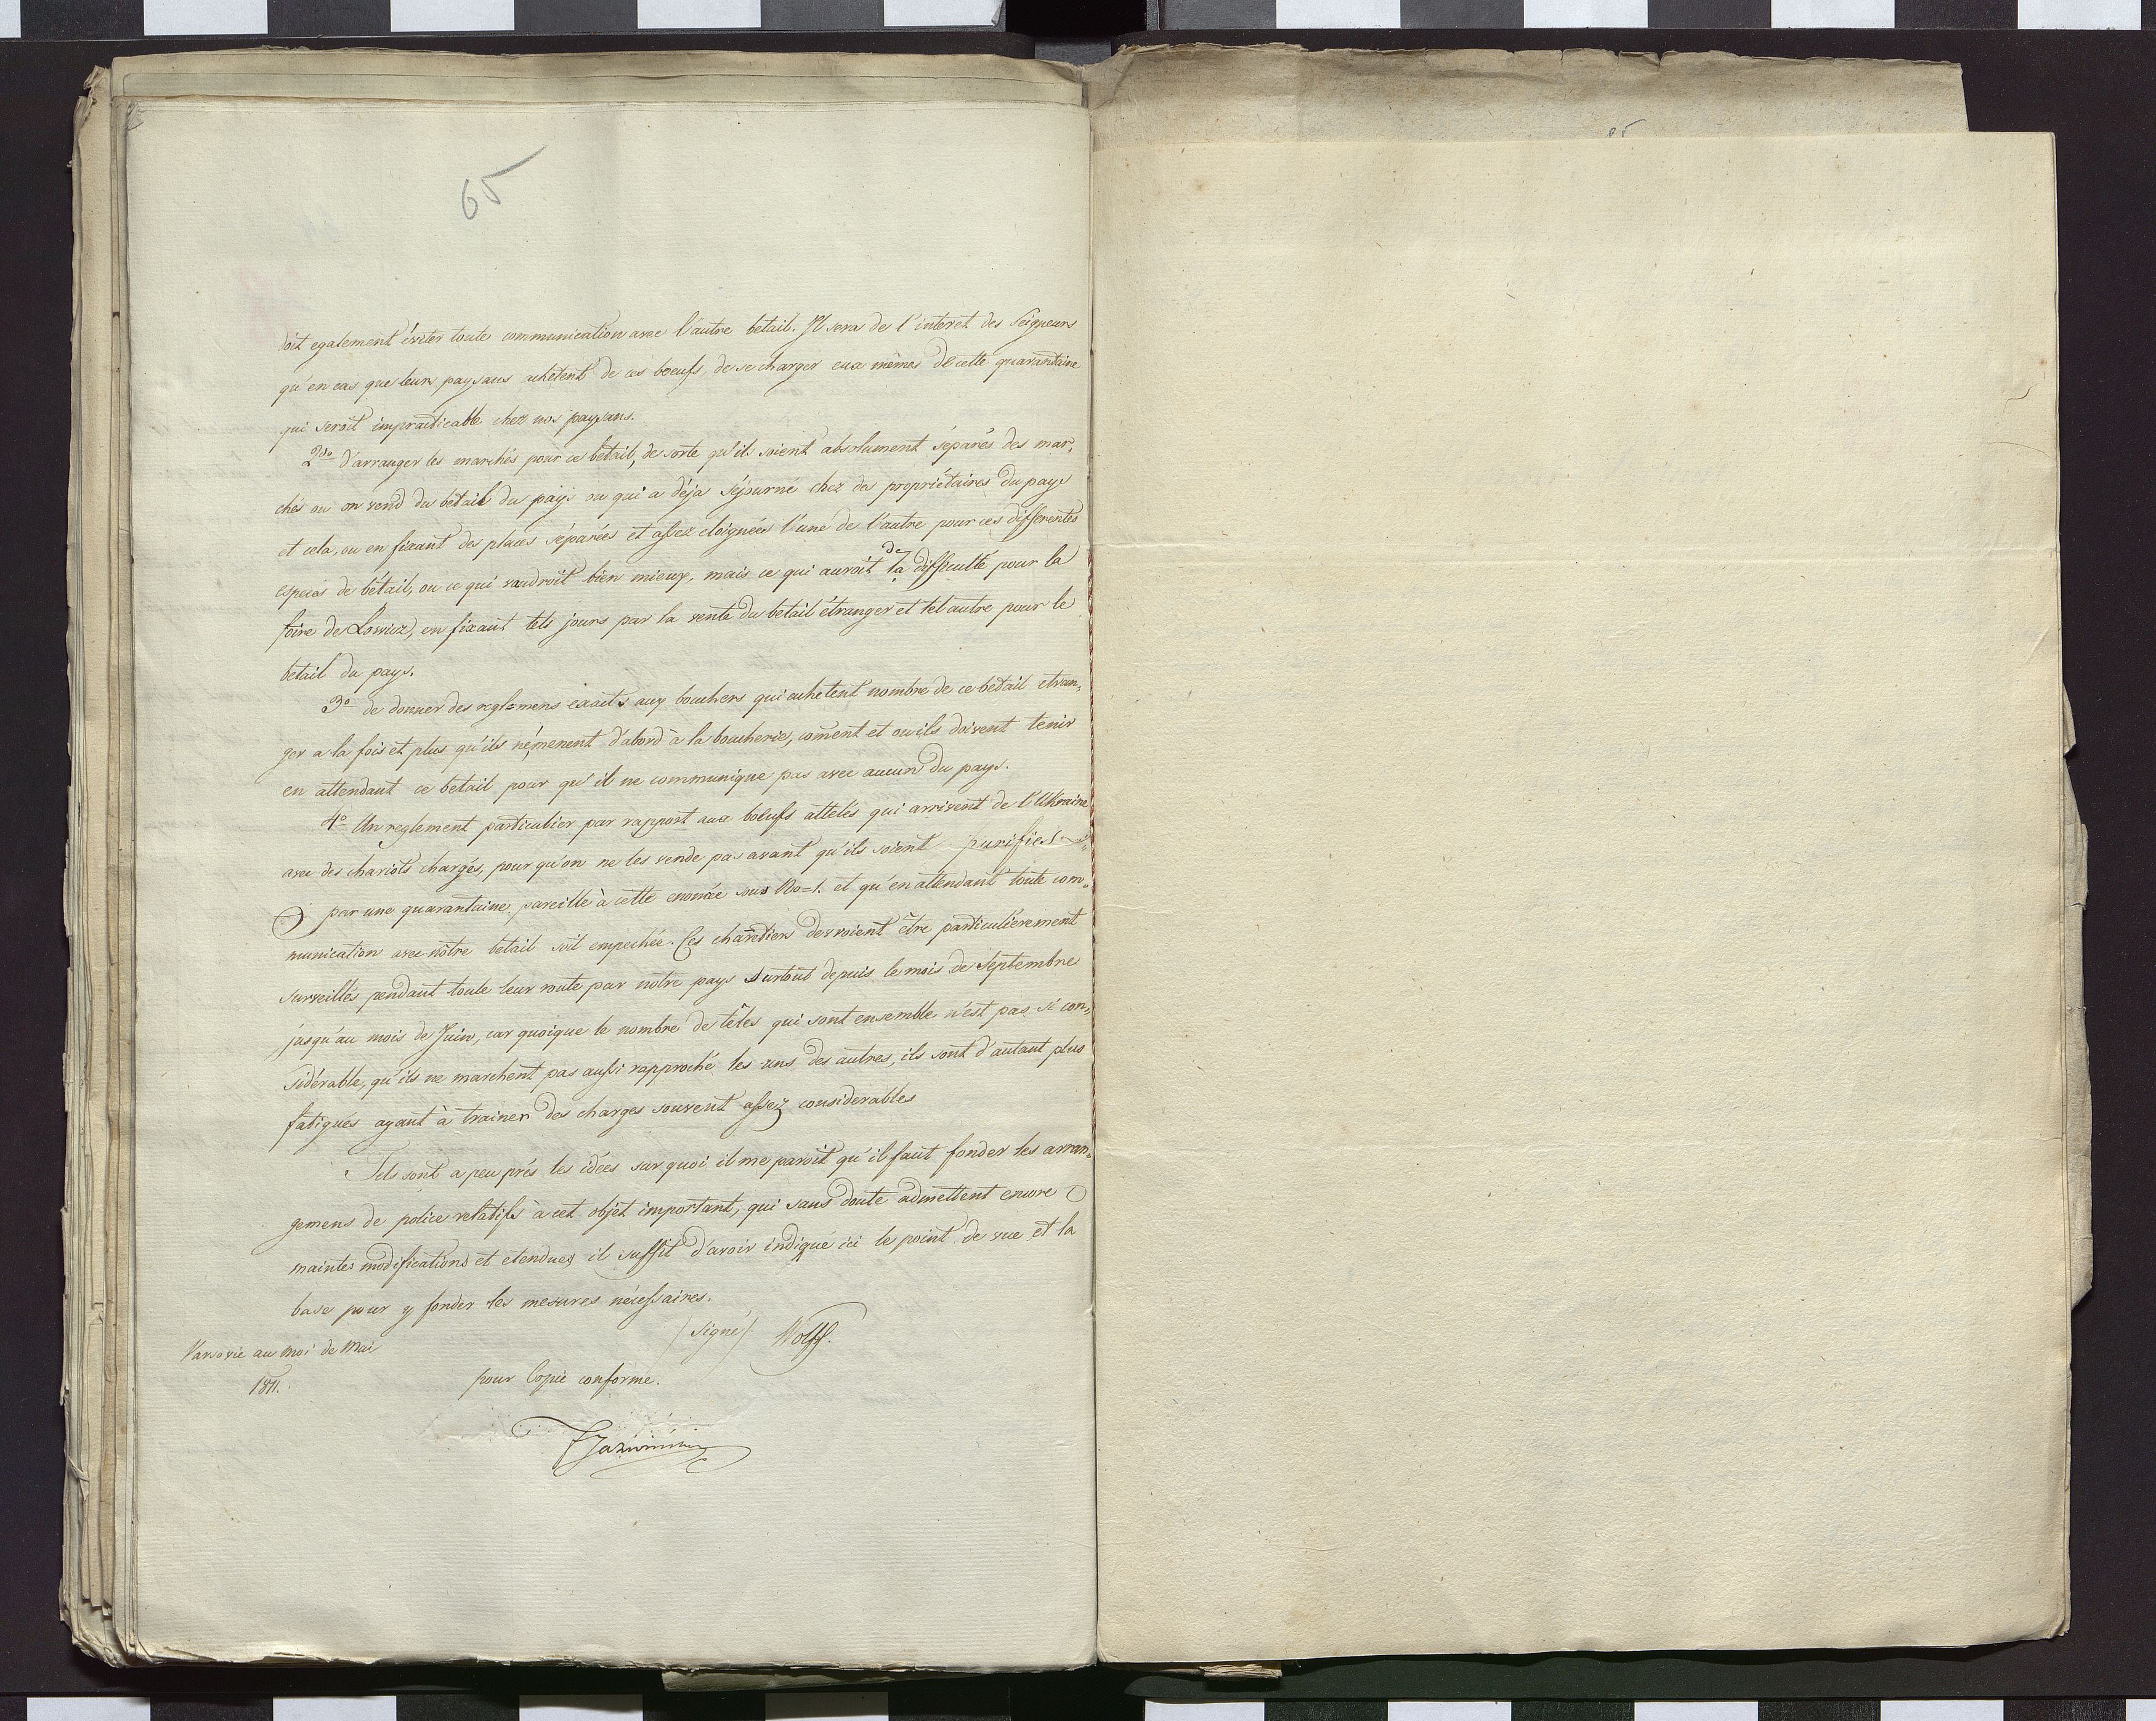 65
doit egalement éviter toute communication avec l'autre betail. Il sera de l'interet des Seigneurs
qu'en cas que leurs paysans achetent de ces boeufs, de se charger eux mêmes de cette quarantaine
qui seroit impraticable chez nos paysans.
2do d'arranger les marchés pour ce bétail, de sorte qu'ils soient absolument séparés des mar,
chés ou on vend du bétail du pays ou qui a déja séjourné chez des propriétaires du pays
et cela, ou en fixant des places séparées et assez éloignées l'une de l'autre pour ces differentes
especes de bétail, ou ce qui vaudroit bien mieux, mais ce qui auroit de la difficulté pour la
foire de Lowicz, en fixant tels jours par la vente du betail étranger et tel autre pour le
betail du pays.
3o de donner des reglemens exacts aux bouchers qui achetent nombre de ce bétail etran,
ger a la fois et plus qu'ils n'emenent d'abord à la boucherie, coment et ou ils doivent tenir
en attendant ce betail pour qu'il ne communique pas avec aucun du pays.
4o Un reglement particulier par rapport aux boeufs attelés qui arrivent de l'Ukraine
avec des chariots chargés, pour qu'on ne les vende pas avant qu'ils soient purifiés
par une quarantaine pareille à cette enoncée sous No=1. et qu'en attendant toute com„
munication avec nôtre betail soit empechée. Ces charetiers devroient être particulièrement
surveillés pendant toute leur route par nôtre pays surtout depuis le mois de Septembre
jusqu'au mois de Juin, car quoique le nombre de têtes qui sont ensemble n'est pas si con„
sidérable, qu'ils ne marchent pas aussi rapproché les uns des autres, ils sont d'autant plus
fatigués ayant à trainer des charges souvent assez considerables
Tels sont a peu prés les idées sur quoi il me paroit qu'il faut fonder les arran„
gemens de police relatifs à cet objet important, qui sans doute admettent encore
maintes modifications et etendues, il suffit d'avoir indiqué ici le point de vue et la
base pour y fonder les mesures nécessaires.
/Signé/ Wolff.
Varsovie au moi de Mai
1811.
pour Copie conforme.